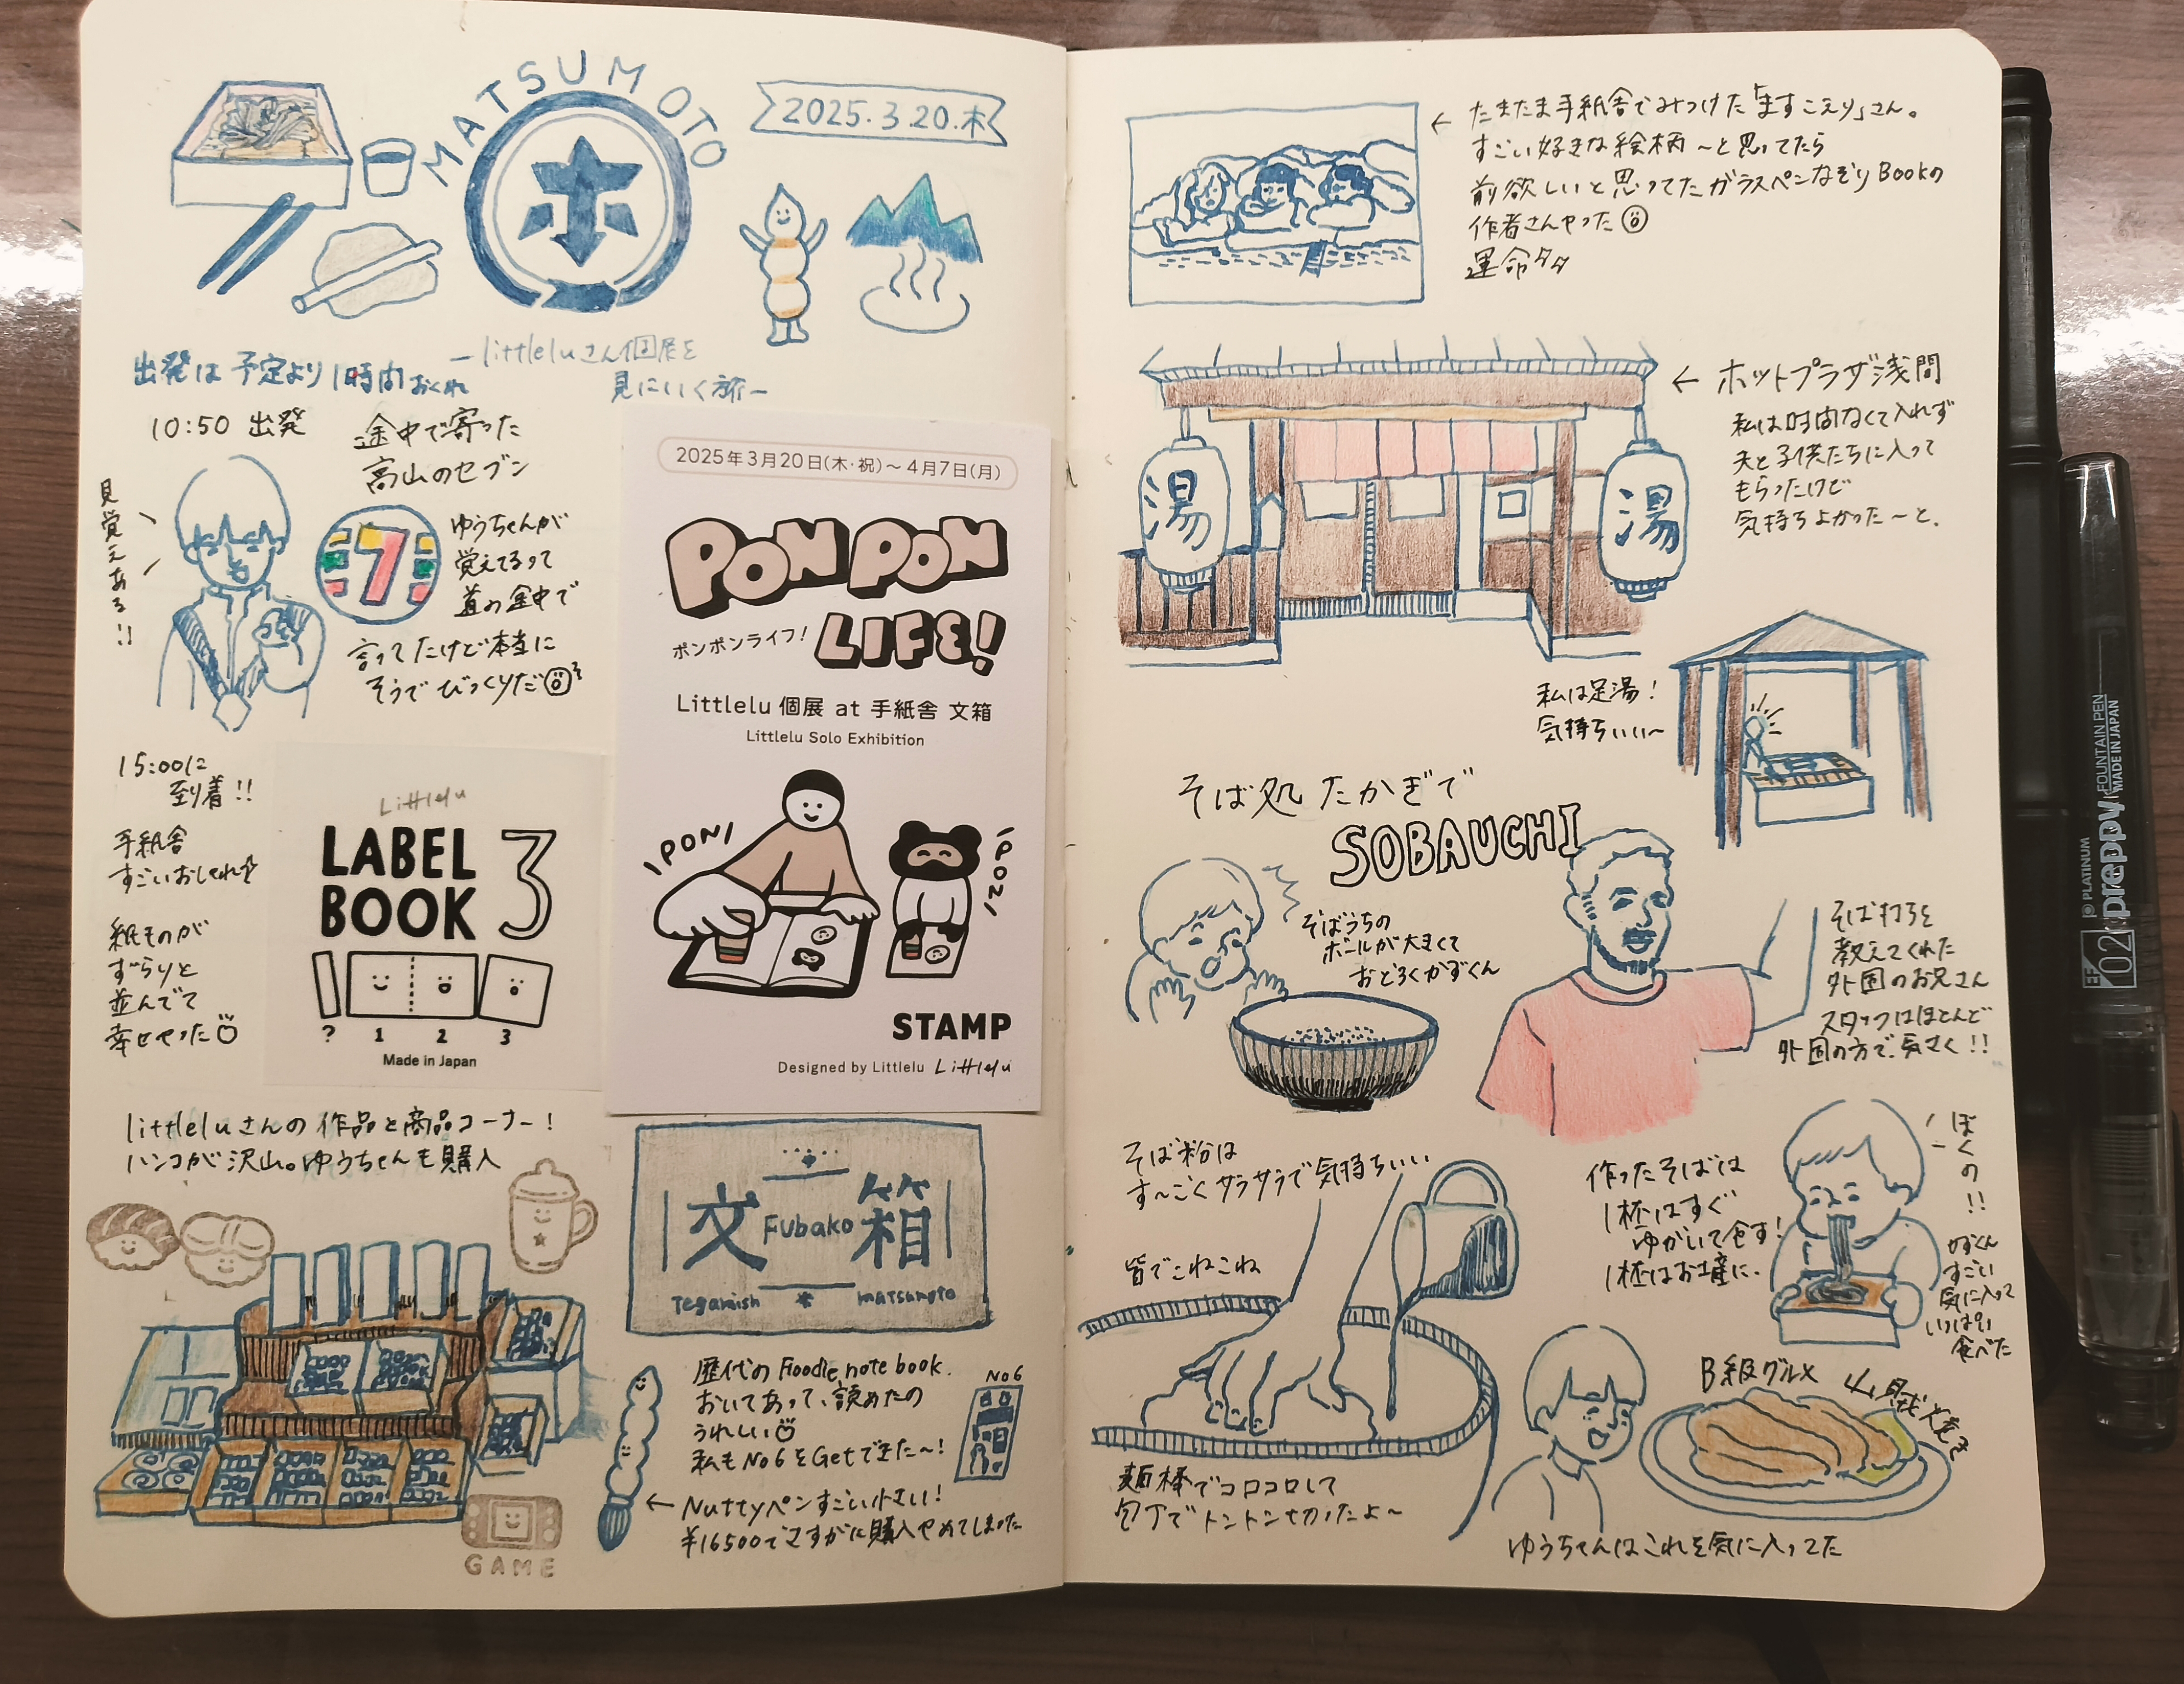 MATSUMOTO
2025.3.20.木
ホ
ーlittleluさん個展を
見にいく旅ー
出発は予定より1時間おくれ
10:50 出発
途中で寄った
高山のセブン
見覚えある!!
7
ゆうちゃんが
覚えてるって
道の途中で
言ってたけど本当に
そうでびっくりだ
15:00に
到着!!
手紙舎
すごいおしゃれ
紙ものが
ずらりと
並んでて
幸せやった
Littlelu
LABEL
BOOK 3
? 1 2 3
Made in Japan
2025年3月20日(木・祝)～4月7日(月)
PON PON
LIFE!
ポンポンライフ!
Littlelu 個展 at 手紙舎 文箱
Littlelu Solo Exhibition
PON
PON
STAMP
Designed by Littlelu Littlelu
littleluさんの作品と商品コーナー!
ハンコが沢山。ゆうちゃんも購入
GAME
文 Fubako 箱
Tegamish matsumoto
歴代のHoodie note book.
おいてあって、読めたの
うれしい
私もNo6をGetできた～!
No6
← Nuttyペンすごい小さい!
¥16500でさすがに購入やめてしまった
← たまたま手紙舎でみつけた「ますこえり」さん。
すごい好きな絵柄～と思ってたら
前欲しいと思ってたガラスペンなぞりBookの
作者さんやった
運命タタ
← ホットプラザ浅間
私は時間なくて入れず
夫と子供たちに入って
もらったけど
気持ちよかった～と.
湯
湯
私は足湯!
気持ちいい～
そば処 たかぎで
SOBAUCHI
そばうちの
ボールが大きくて
おどろくかずくん
そば打ちを
教えてくれた
外国のお兄さん
スタッフはほとんど
外国の方で、気さく!!
そば粉は
す～ごくサラサラで気持ちいい
皆でこねこね
作ったそばは
1杯はすぐ
ゆがいて食す!
1杯はお土産に.
ぼくの!!
かずくん
すごい
気に入って
いっぱい
食べた
麺棒でコロコロして
包丁でトントン切ったよ～
B級グルメ 山賊焼き
ゆうちゃんはこれを気に入ってた
PLATINUM
preppy FOUNTAIN PEN
MADE IN JAPAN
EF
02